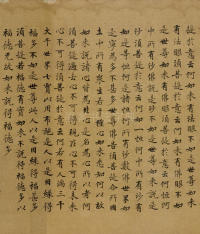 提於意云何如來有法眼不如是世尊如來
有法眼須菩提於意云何如來有佛眼不如
是世尊如來有佛眼須菩提於意云何恒河
中所有沙佛說是沙不如是世尊如來說是
沙須菩提於意云何如一恒河中所有沙有
如是等恒河是諸恒河所有沙數佛世界如
是寧為多不甚多世尊佛告須菩提爾所國
土中所有眾生若干種心如來悉知何以故
如來說諸心皆為非心是名為心所以者何
須菩提過去心不可得現在心不可得未來
心不可得須菩提於意云何若有人滿三千
大千世界七寶以用布施是人以是因緣得
福多不如是世尊此人以是因緣得福甚多
須菩提若福德有實如來不說得福德多以
福德無故如來說得福德多